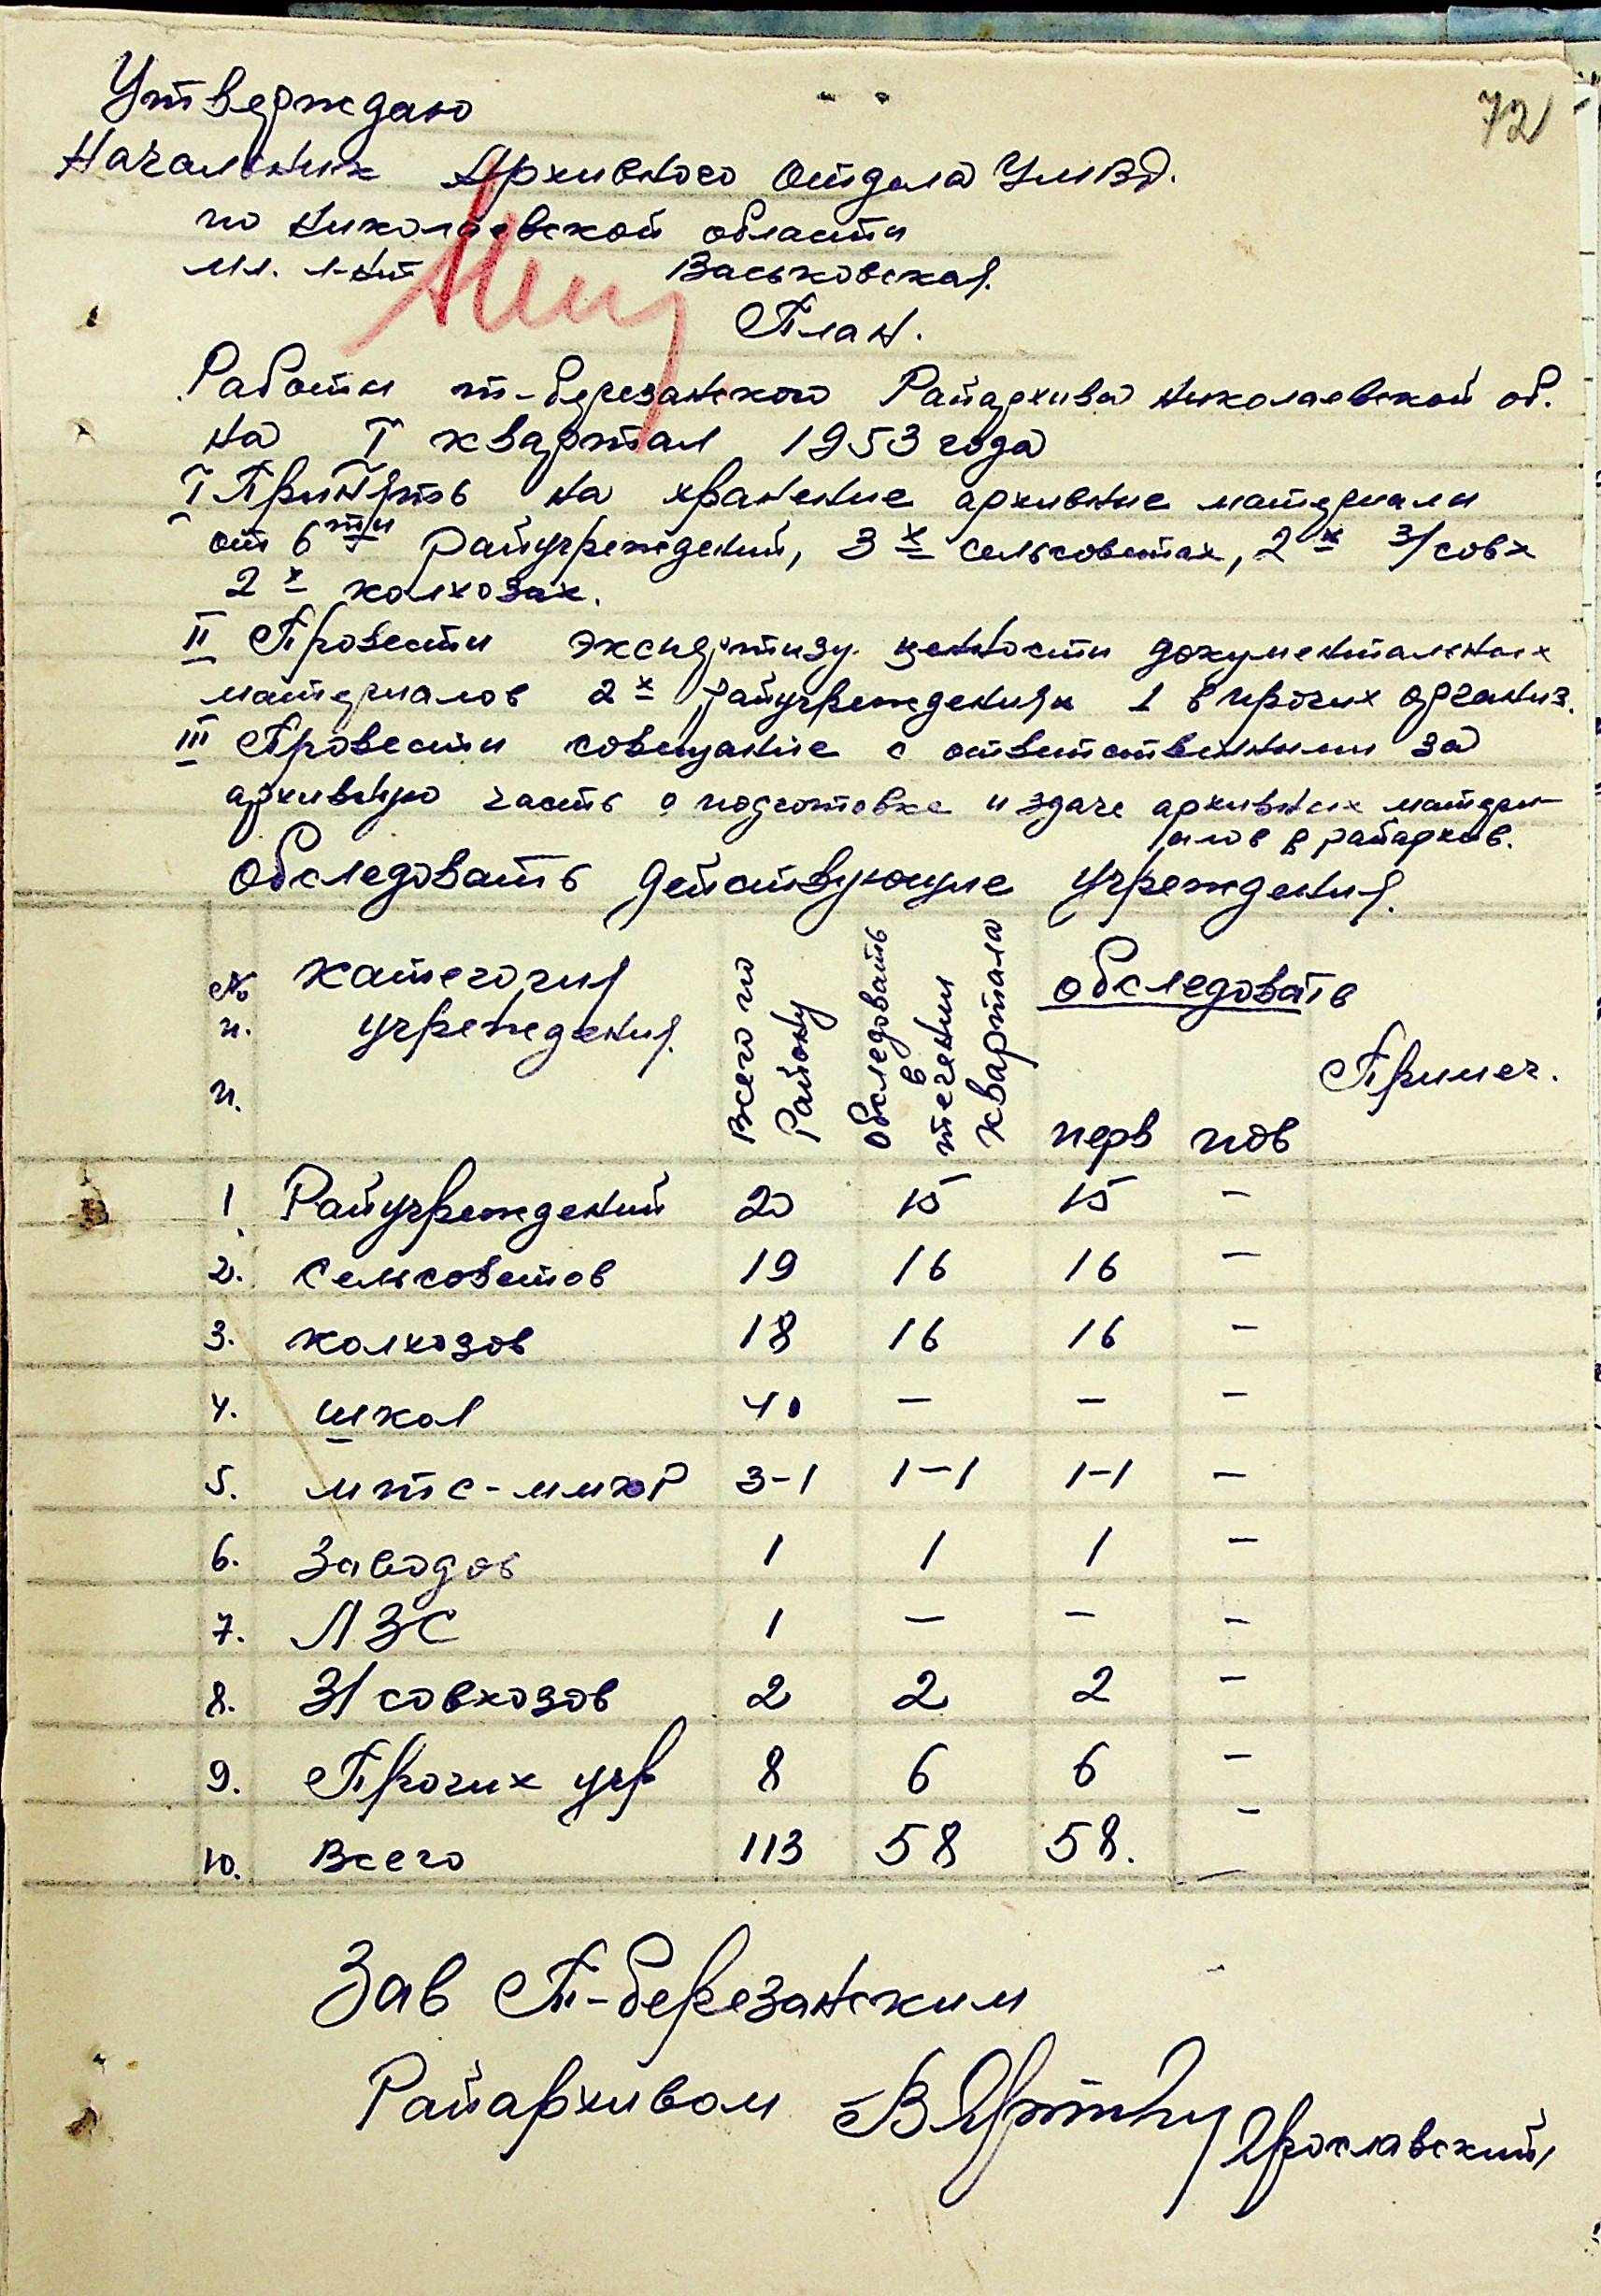 72
Утверждаю
Начальник Архивного отдела УМВД.
по Николаевской области
мл. л-нт Васьковская.
План.
Работы т-березанского Райархива Николаевской об.
на I квартал 1953 года
I Принять на хранение архивные материалы
от 6ти райучреждений, 3х сельсоветах, 2х з/совх
2х колхозах.
II Провести экспертизу ценности документальных
материалов 2х райучреждениях 1 в прочих организ.
III Провести совещание с ответственными за
архивную часть о подготовке и здаче архивных матери-
алов в райархив.
Обследовать действующие учреждения.
№ п. п. категория учреждения. Всего по Району Обследовать в течении квартала обследовать Примеч.
перв пов
1. Райучреждений 20 15 15 -
2. Сельсоветов 19 16 16 -
3. колхозов 18 16 16 -
4. школ 40 - - -
5. мтс- 3-1 1-1 1-1 -
6. Заводов 1 1 1 -
7. ЛЗС 1 - - -
8. З/совхозов 2 2 2 -
9. Прочих учр 8 6 6 -
10. Всего 113 58 58. -
Зав Т-березанским
Райархивом Ярославский/